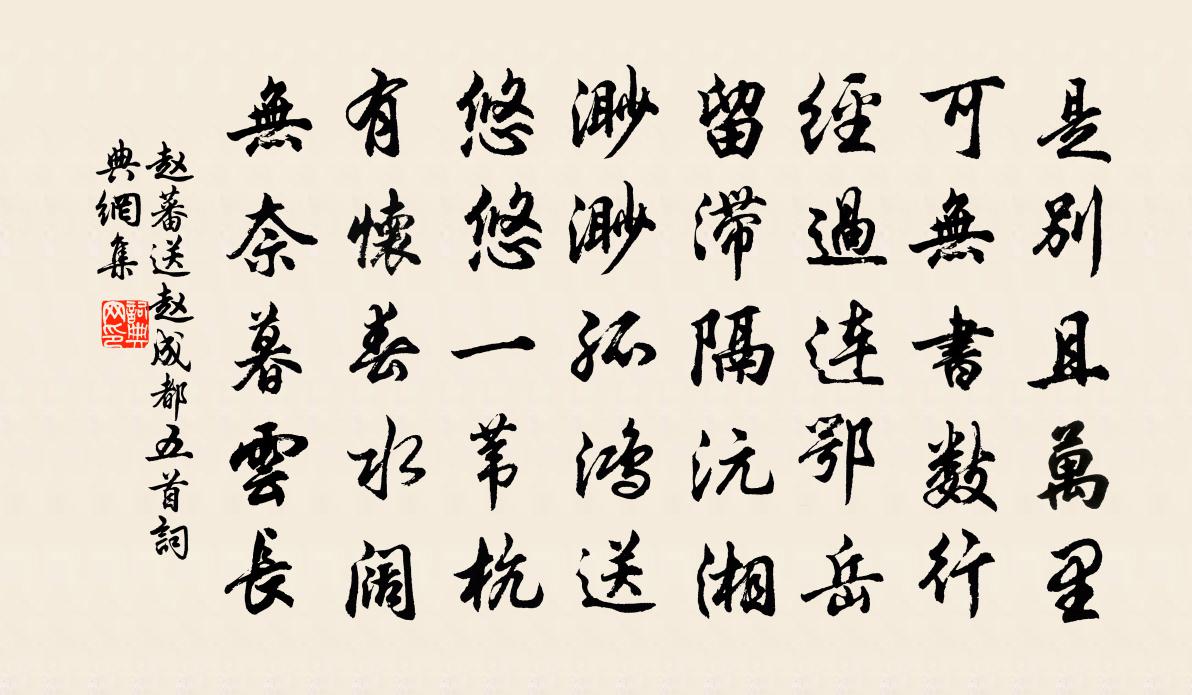 是別且萬里
可無書數行
經過連鄂岳
留滯隔沅湘
渺渺孤鴻送
悠悠一苇杭
有懷春水阔
無奈暮雲長
赵蕃送赵成都五首詞
典網集
詞典
网印